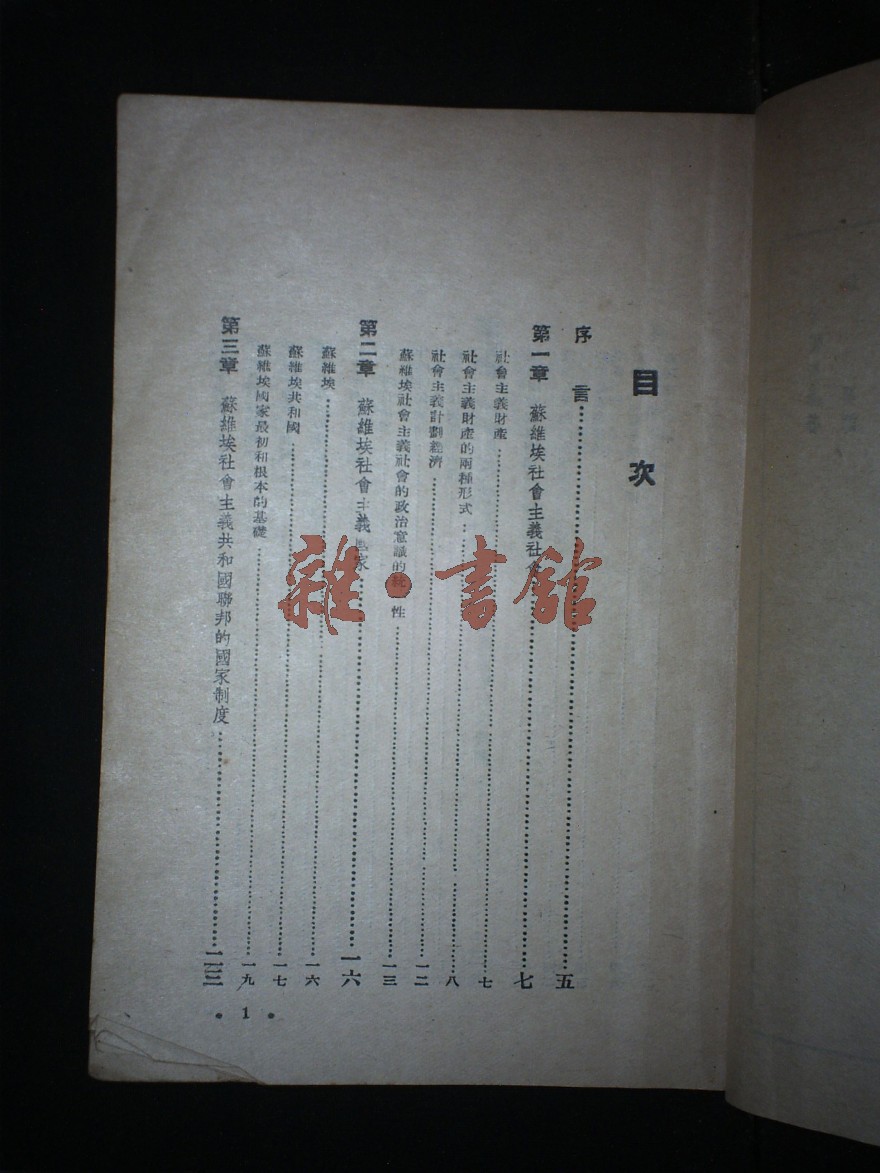 目次
序言…………五
第一章 蘇維埃社會主義社會…………七
社會主義財產…………七
社會主義財產的兩種形式…………八
社會主義計劃經濟…………一二
蘇維埃社會主義社會的政治意識的 性…………一三
第二章 蘇維埃社會主義國家…………一六
蘇維埃…………一六
蘇維埃共和國…………一七
蘇維埃國家最初和根本的基礎…………一九
第三章 蘇維埃社會主義共和國聯邦的國家制度…………二三
• 1 •
雜·書館